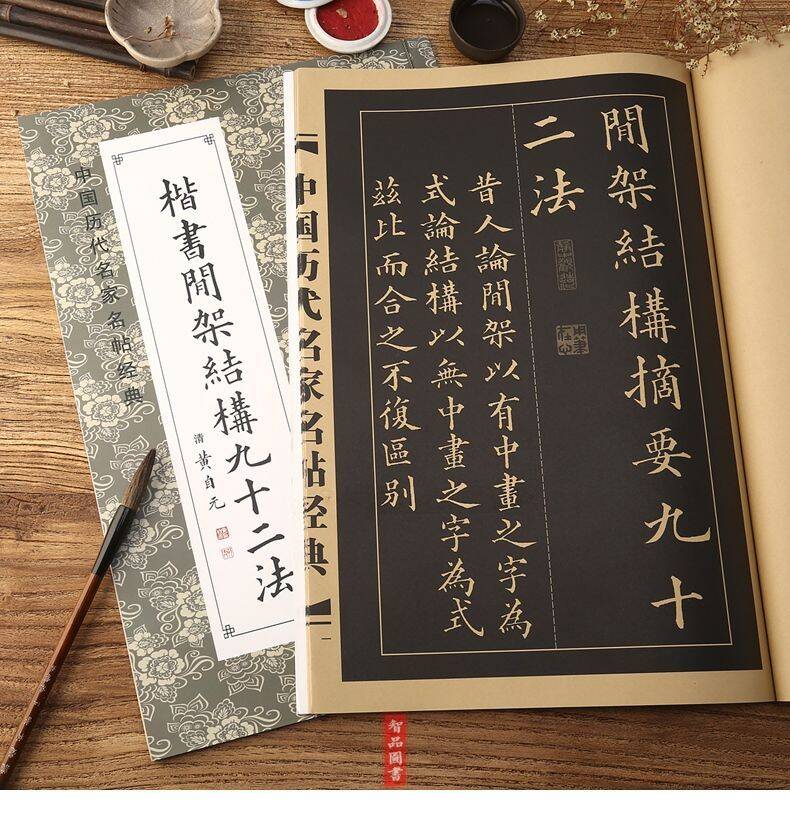 中国历代名家名帖经典
楷書閒架結構九十二法
清 黄自元
中国历代名家名帖经典
一
閒架結構摘要九十
二法
昔人論閒架以有中畫之字為
式論結構以無中畫之字為式
茲比而合之不復區别
智品圖書